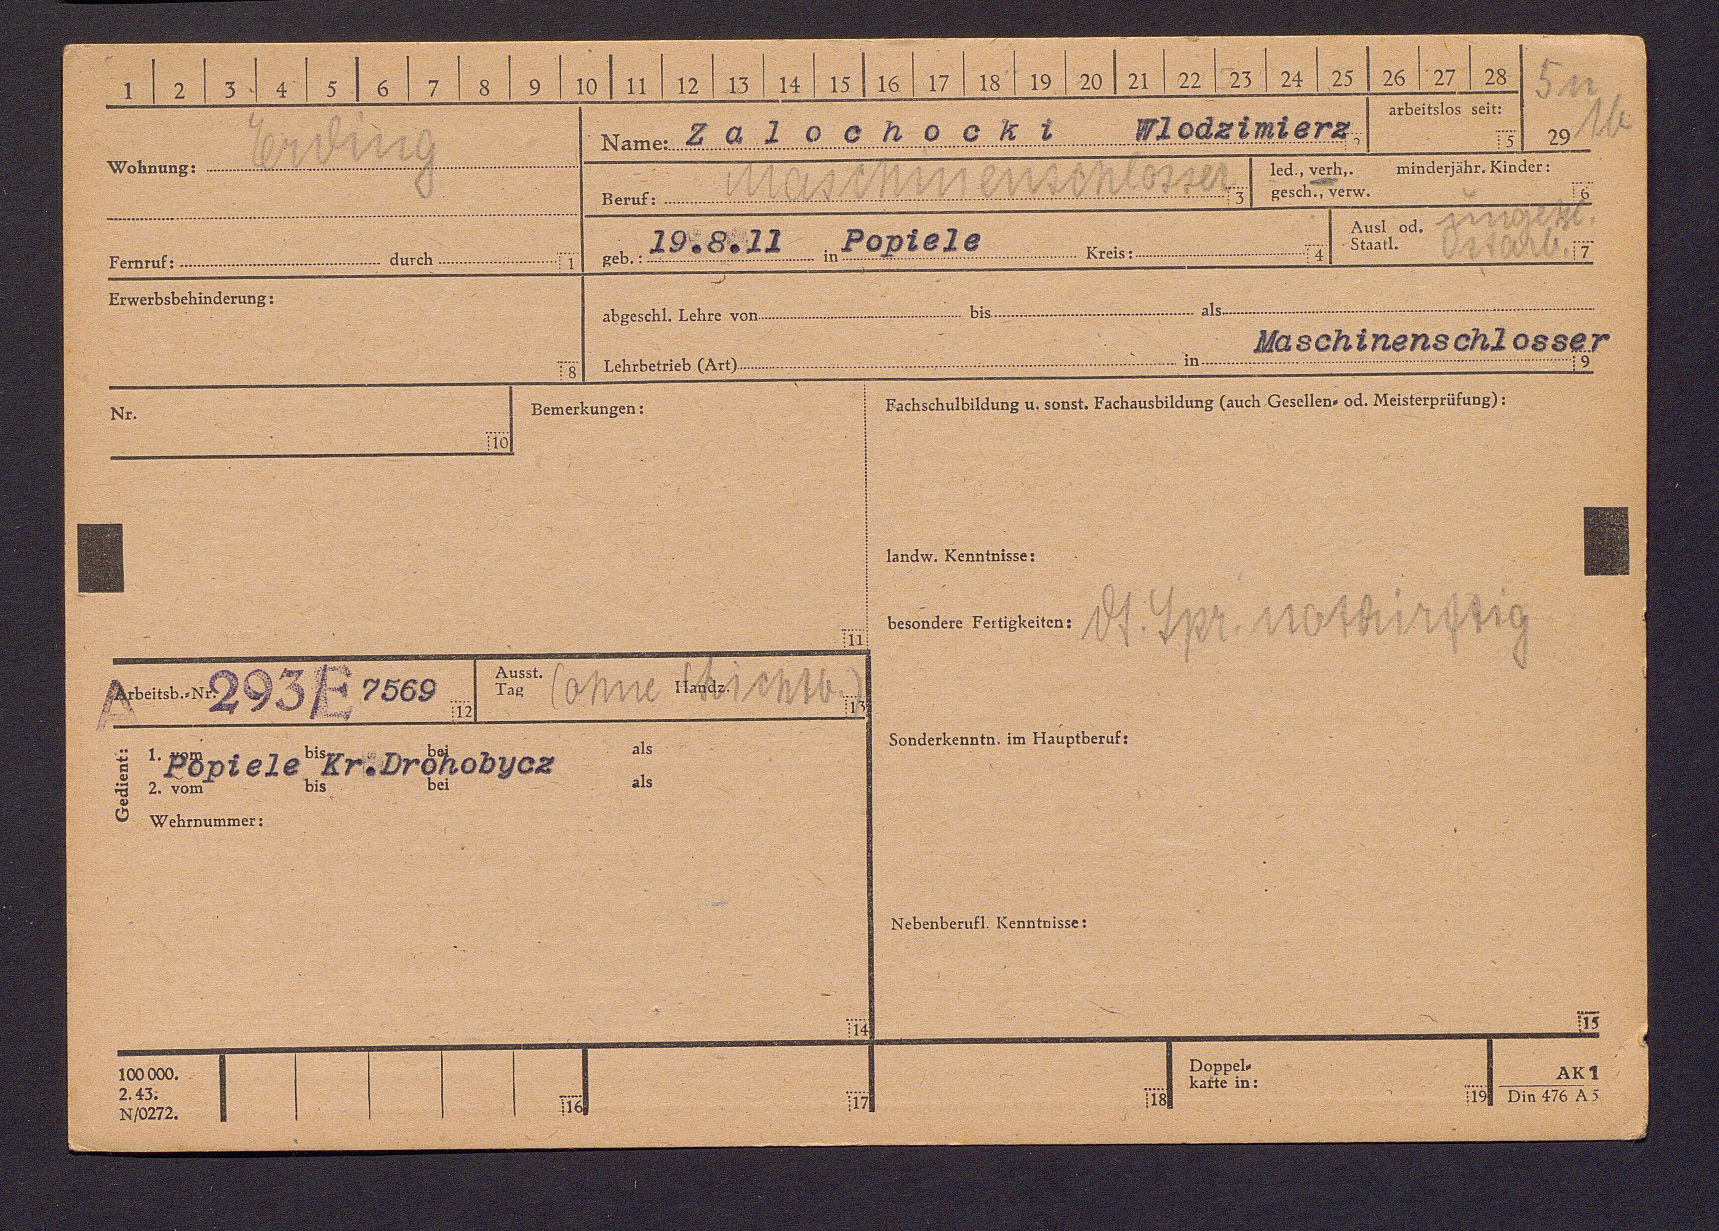 1 2 3 4 5 6 7 8 9 10 11 12 13 14 15 16 17 18 19 20 21 22 23 24 25 26 27 28
29
Wohnung: Erding
Name: Zalochocki Wlodzimierz 2
arbeitslos seit: 5
Beruf: Maschinenschlosser 3
led., verh,. minderjähr. Kinder:
gesch., verw. 6
Fernruf: durch 1
geb.: 19.8.11 in Popiele Kreis: 4
Ausl od.
Staatl. Ostarb. 7
Erwerbsbehinderung: 8
abgeschl. Lehre von bis als
Maschinenschlosser
Lehrbetrieb (Art) in 9
Nr. 10
Bemerkungen: 11
Fachschulbildung u. sonst. Fachausbildung (auch Gesellen- od. Meisterprüfung):
landw. Kenntnisse:
besondere Fertigkeiten: dt. Spr. notdürftig
A
Arbeitsb.-Nr. 293/E 7569 12
Ausst.
Tag (ohne Lichtb.) Handz. 13
Sonderkenntn. im Hauptberuf:
Gedient:
1. vom bis bei als
Popiele Kr.Drohobycz
2. vom bis bei als
Wehrnummer:
Nebenberufl. Kenntnisse:
14
15
100 000.
2. 43.
N/0272.
16
17
18
Doppel-
karte in: 19
AK 1
Din 476 A 5